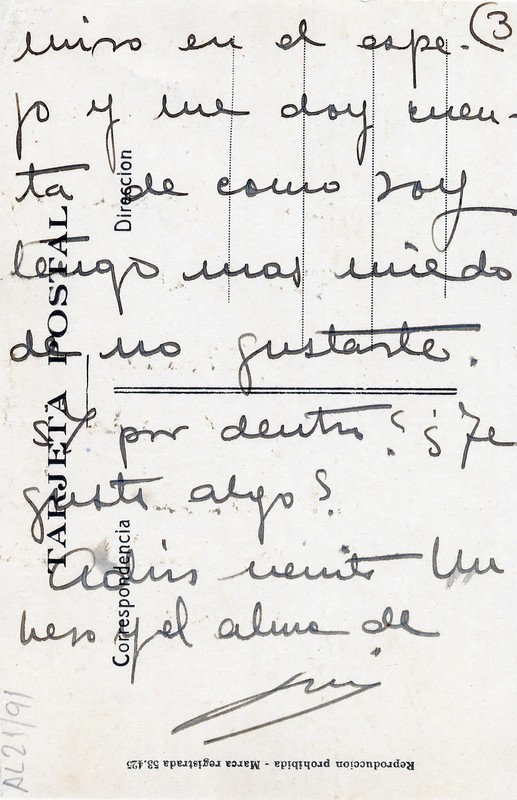 miro en el espe- (3
jo y me doy cuen-
ta de como soy
tengo mas miedo
de no gustarte.
¿Y por dentro? ¿Te
gusto algo?
Adios nenito Un
beso y el alma de
TARJETA POSTAL
Direccion
Correspondencia
Reproduccion prohibida - Marca registrada 53.425
AL21/91